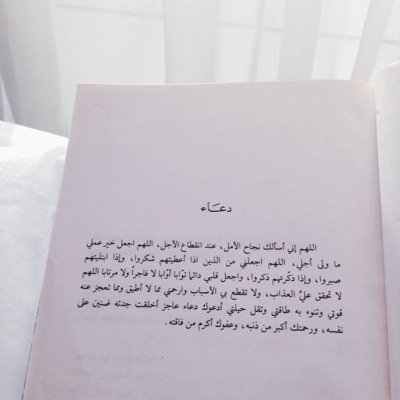 دعَاء
اللهم إني أسألك نجاح الأمل، عند انقطاع الأجل، اللهم اجعل خير عملي
ما ولى أجلي، اللهم اجعلني من الذين اذا أعطيتهم شكروا، وإذا ابتليتهم
صبروا، وإذا ذكّرتهم ذكروا، واجعل قلبي دائما توّابا أوّابا لا فاجراً ولا مرتابا اللهم
لا تحقق عليَّ العذاب، ولا تقطع بي الأسباب وارحمني مما لا أطيق ومما تعجز عنه
قوتي وتنوء به طاقتي وتقل حيلتي أدعوك دعاء عاجز أخلقت جدته ضنين على
نفسه، ورحمتك أكبر من ذنبه، وعفوك أكرم من فاقته.